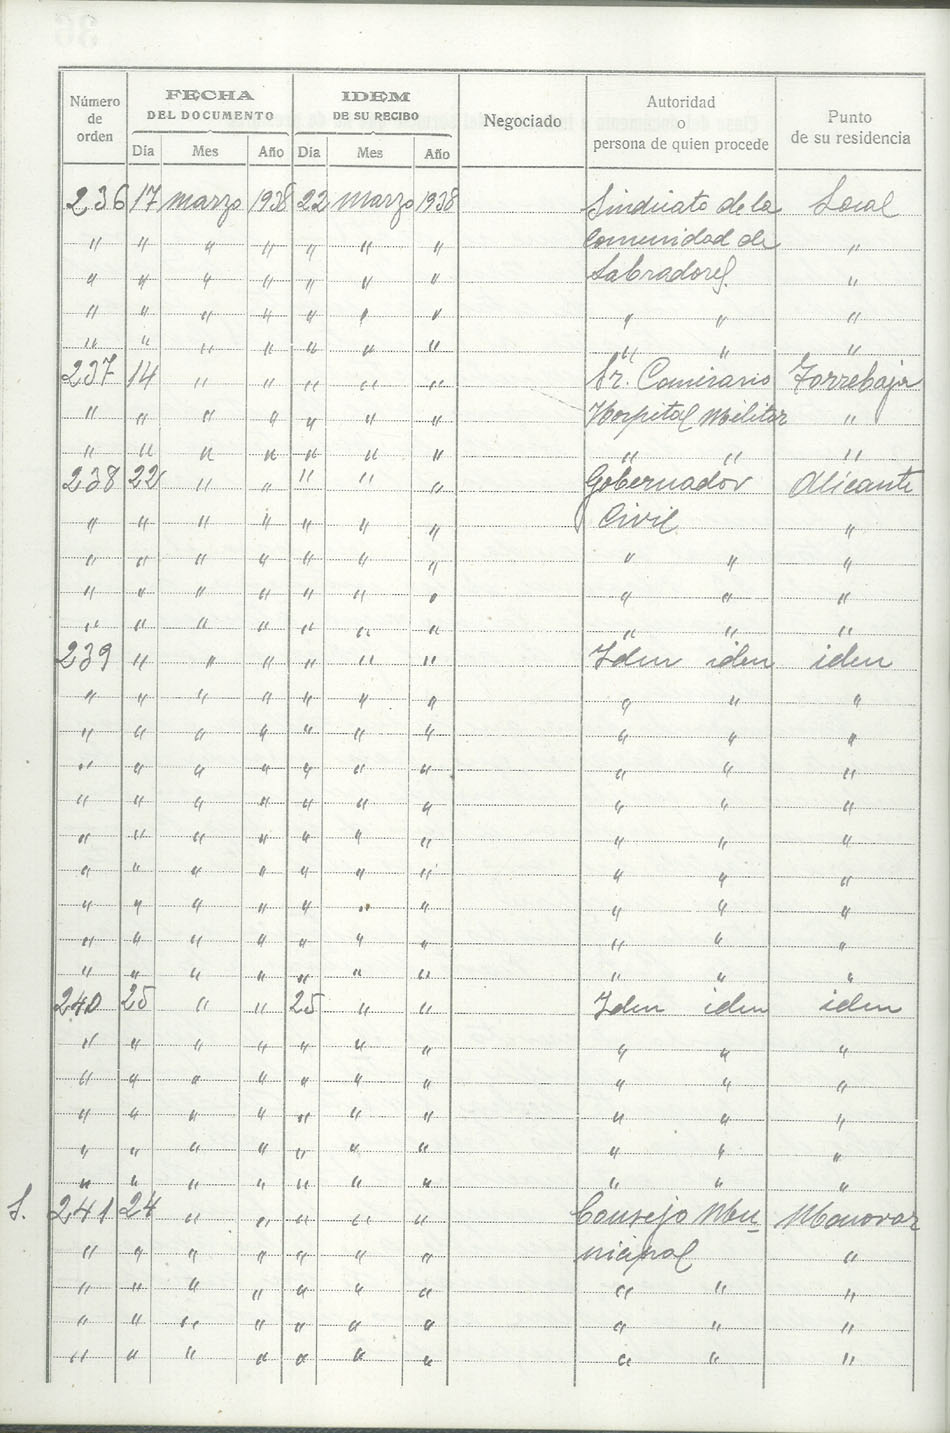 Número de orden | FECHA DEL DOCUMENTO | IDEM DE SU RECIBO | Negociado | Autoridad o persona de quien procede | Punto de su residencia
Día | Mes | Año | Día | Mes | Año
236 | 17 | marzo | 1938 | 22 | marzo | 1938 | | Sindicato de la | Local
" | " | " | " | " | " | " | | Comunidad de | "
" | " | " | " | " | " | " | | Labradores. | "
" | " | " | " | " | " | " | | " " | "
" | " | " | " | " | " | " | | " " | "
237 | 14 | " | " | " | " | " | | Sr. Comisario | Torrebaja
" | " | " | " | " | " | " | | Hospital Militar | "
" | " | " | " | " | " | " | | " " | "
238 | 22 | " | " | " | " | " | | Gobernador | Alicante
" | " | " | " | " | " | " | | Civil | "
" | " | " | " | " | " | " | | " " | "
" | " | " | " | " | " | " | | " " | "
" | " | " | " | " | " | " | | " " | "
239 | " | " | " | " | " | " | | Iden iden | iden
" | " | " | " | " | " | " | | " " | "
" | " | " | " | " | " | " | | " " | "
" | " | " | " | " | " | " | | " " | "
" | " | " | " | " | " | " | | " " | "
" | " | " | " | " | " | " | | " " | "
" | " | " | " | " | " | " | | " " | "
" | " | " | " | " | " | " | | " " | "
" | " | " | " | " | " | " | | " " | "
" | " | " | " | " | " | " | | " " | "
240 | 25 | " | " | 25 | " | " | | Iden iden | iden
" | " | " | " | " | " | " | | " " | "
" | " | " | " | " | " | " | | " " | "
" | " | " | " | " | " | " | | " " | "
" | " | " | " | " | " | " | | " " | "
" | " | " | " | " | " | " | | " " | "
S. 241 | 24 | " | " | " | " | " | | Consejo Mu- | Monovar
" | " | " | " | " | " | " | | nicipal | "
" | " | " | " | " | " | " | | " " | "
" | " | " | " | " | " | " | | " " | "
" | " | " | " | " | " | " | | " " | "